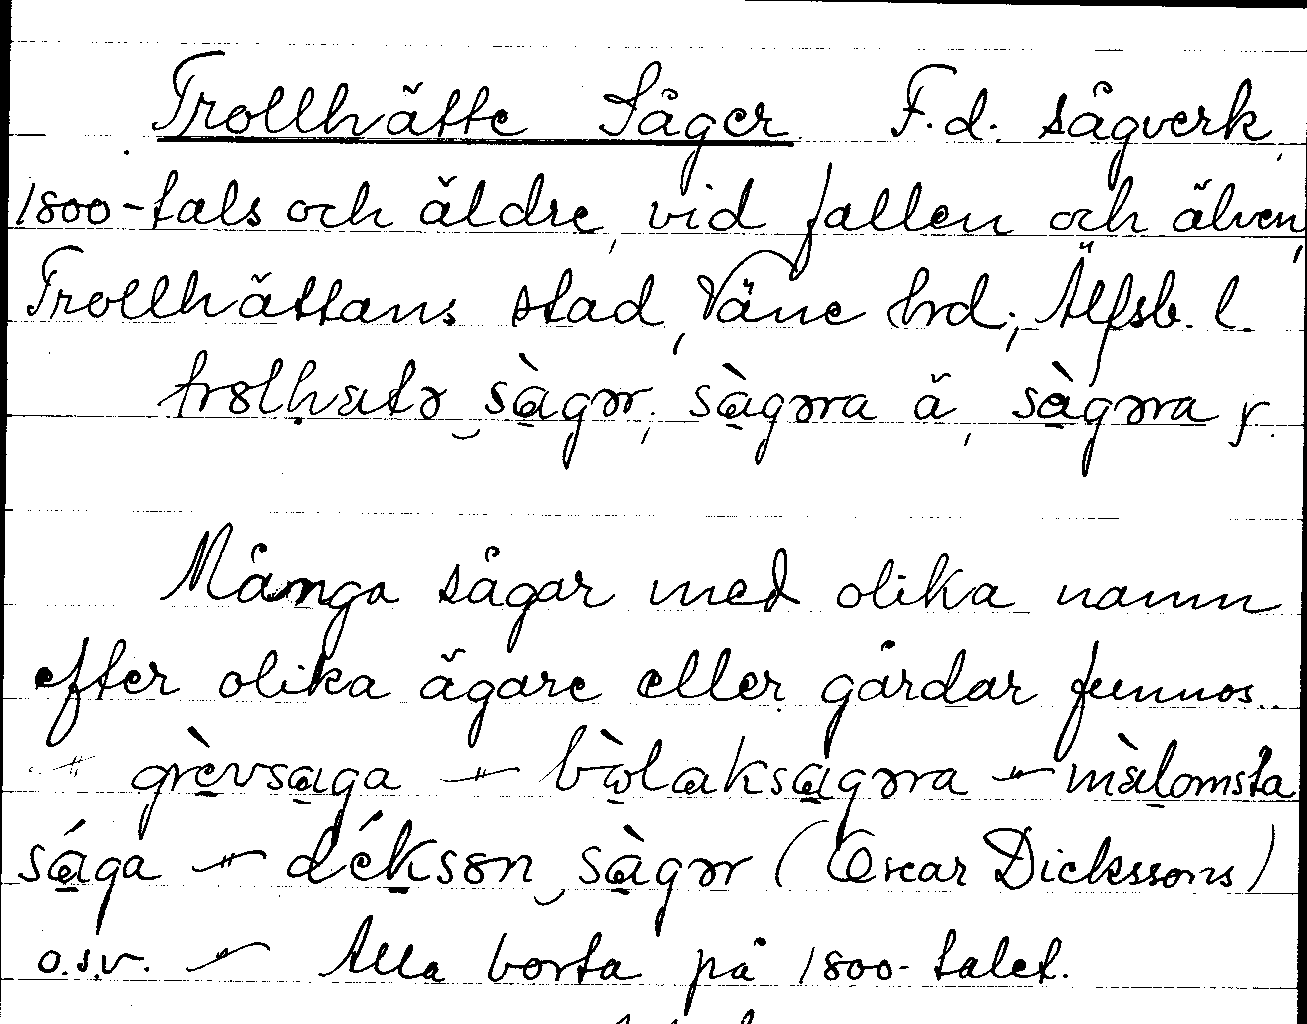 Trollhätte Såger F.d. sågverk,
1800-tals och äldre, vid fallen och älven,
Trollhättans stad, Väne hrd; Älfsb. l.
trolhætə sàgər, sàgəra ä, sàgəra f.
Många sågar med olika namn
efter olika ägare eller gårdar funnos.
grèvsaga – bòlaksagəra – màlomsta
sága – déksən sàgər (Oscar Dickssons)
o.s.v. – Alla borta på 1800-talet.